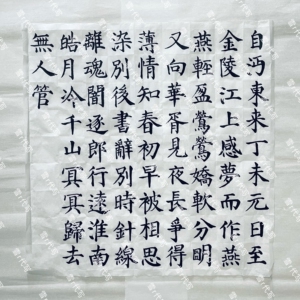 自沔東来丁未元日至
金陵江上感夢而作燕
燕輕盈鶯鶯嬌軟分明
又向華胥見夜長爭得
薄情知春初早被相思
染別後書辭別時針線
離魂闇逐郎行遠淮南
皓月冷千山冥冥歸去
無人管